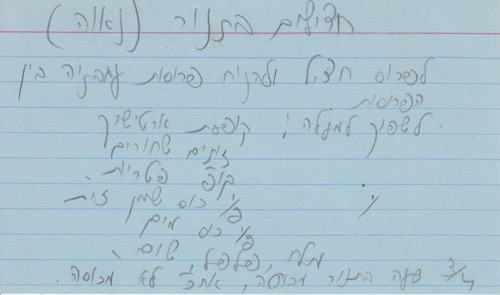 חצילים בתנור (נאוה)
לפרוס חציל ולהניח פרוסות עגבניה בין
הפרוסות
לשפוך למעלה: קופסת ארטישוק
זיתים שחורים
קופ' פטריות
1/2 כוס שמן זית
1/2 כוס מים
מלח, פלפל, שום
3/4 שעה בתנור מכוסה, אח"כ לא מכוסה.